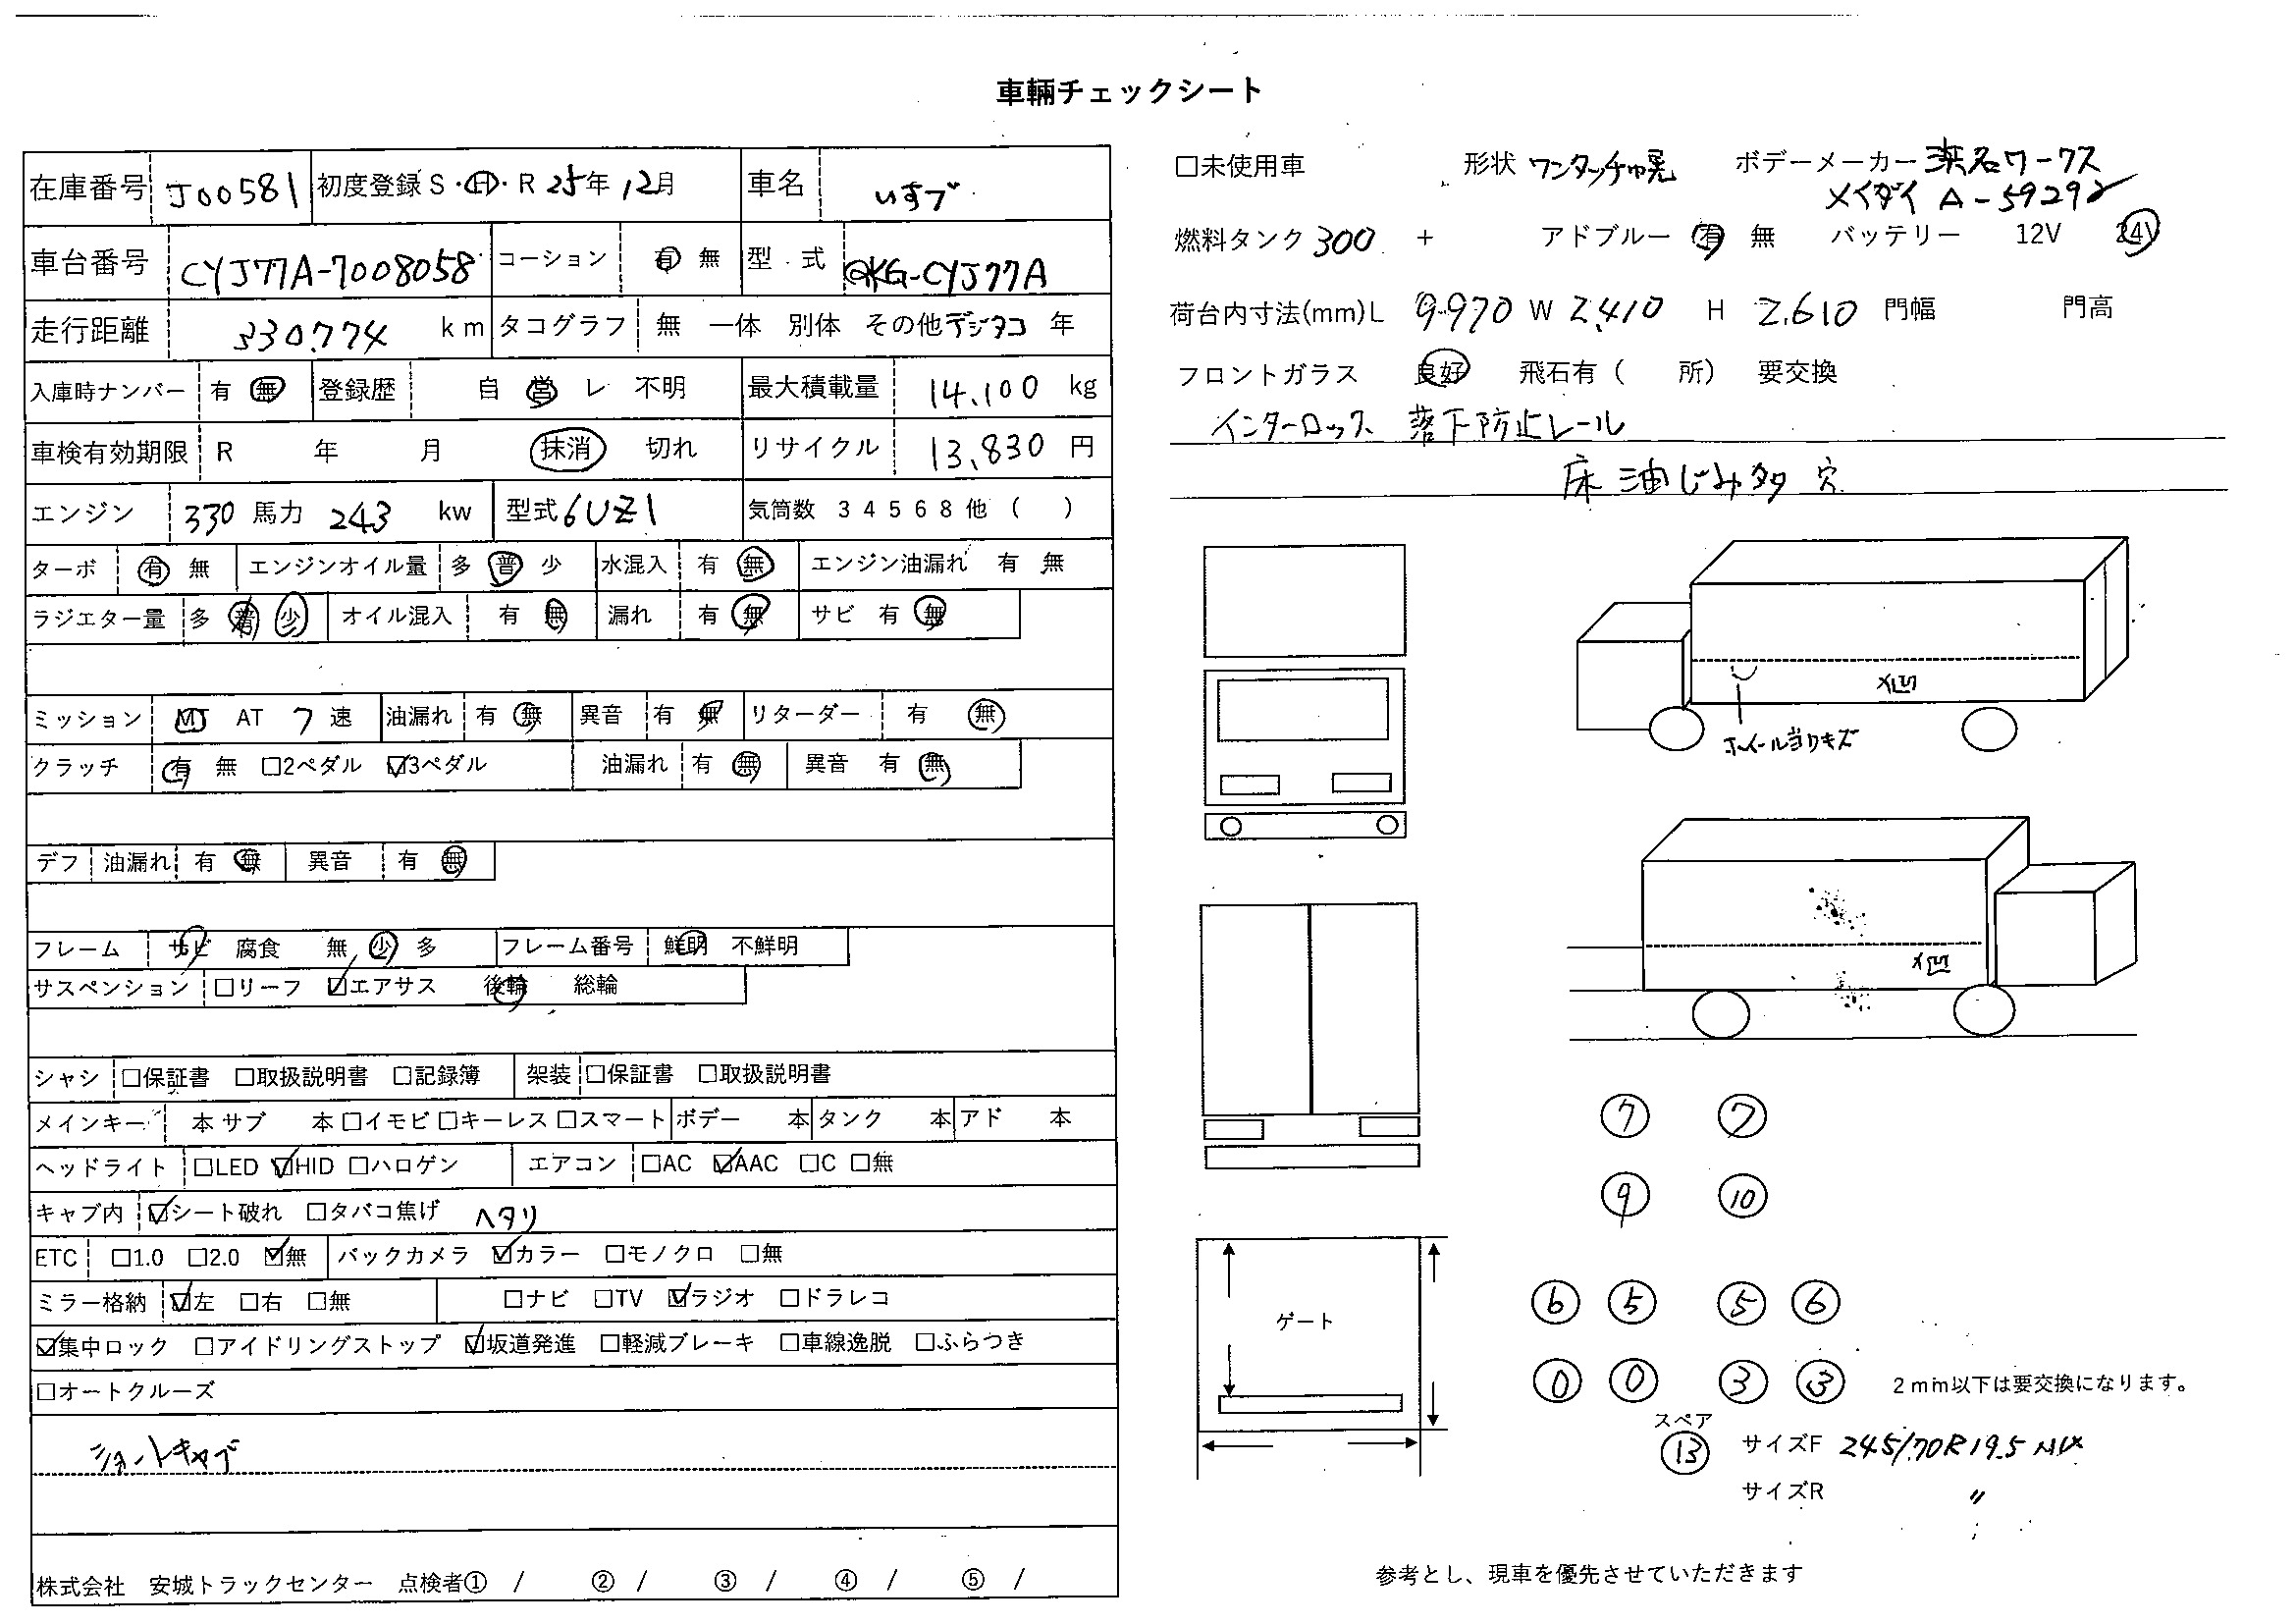 車輌チェックシート
在庫番号 J00581 初度登録 S・H・R 25年 12月 車名 いすゞ
車台番号 CYJ77A-7008058 コーション 有 無 型 式 QKG-CYJ77A
走行距離 330,774 km タコグラフ 無 一体 別体 その他 デジタコ 年
入庫時ナンバー 有 無 登録歴 自 営 レ 不明 最大積載量 14,100 kg
車検有効期限 R 年 月 抹消 切れ リサイクル 13,830 円
エンジン 330 馬力 243 kw 型式 6UZ1 気筒数 3 4 5 6 8 他 ( )
ターボ 有 無 エンジンオイル量 多 普 少 水混入 有 無 エンジン油漏れ 有 無
ラジエター量 多 普 少 オイル混入 有 無 漏れ 有 無 サビ 有 無
ミッション MT AT 7 速 油漏れ 有 無 異音 有 無 リターダー 有 無
クラッチ 有 無 □2ペダル ☑3ペダル 油漏れ 有 無 異音 有 無
デフ 油漏れ 有 無 異音 有 無
フレーム サビ 腐食 無 少 多 フレーム番号 鮮明 不鮮明
サスペンション □リーフ ☑エアサス 後輪 総輪
シャシ □保証書 □取扱説明書 □記録簿 架装 □保証書 □取扱説明書
メインキー 本 サブ 本 □イモビ □キーレス □スマート ボデー 本 タンク 本 アド 本
ヘッドライト □LED ☑HID □ハロゲン エアコン □AC ☑AAC □C □無
キャブ内 ☑シート破れ □タバコ焦げ ヘタリ
ETC □1.0 □2.0 ☑無 バックカメラ ☑カラー □モノクロ □無
ミラー格納 ☑左 □右 □無 □ナビ □TV ☑ラジオ □ドラレコ
☑集中ロック □アイドリングストップ ☑坂道発進 □軽減ブレーキ □車線逸脱 □ふらつき
□オートクルーズ
ショートキャブ
株式会社 安城トラックセンター 点検者① / ② / ③ / ④ / ⑤ /
□未使用車 形状 ワンタッチ幌 ボデーメーカー 浜名ワークス
メイダイ A-59292
燃料タンク 300 + アドブルー 有 無 バッテリー 12V 24V
荷台内寸法(mm) L 9.970 W 2.410 H 2.610 門幅 門高
フロントガラス 良好 飛石有 ( 所) 要交換
インターロック 落下防止レール
床 油じみ多 穴
メ凹
ホイール当りキズ
メ凹
7 7
9 10
6 5 5 6
ゲート
0 0 3 3 2mm以下は要交換になります。
スペア
13 サイズF 245/70R19.5 MIX
サイズR 〃
参考とし、現車を優先させていただきます